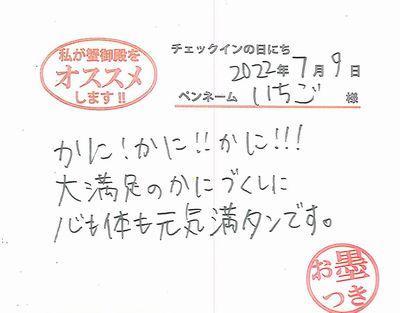 私が蟹御殿を
オススメ
します!!
チェックインの日にち
2022年7月9日
ペンネーム いちご 様
かに!かに!!かに!!!
大満足のかにづくしに
心も体も元気満タンです。
お墨
つき